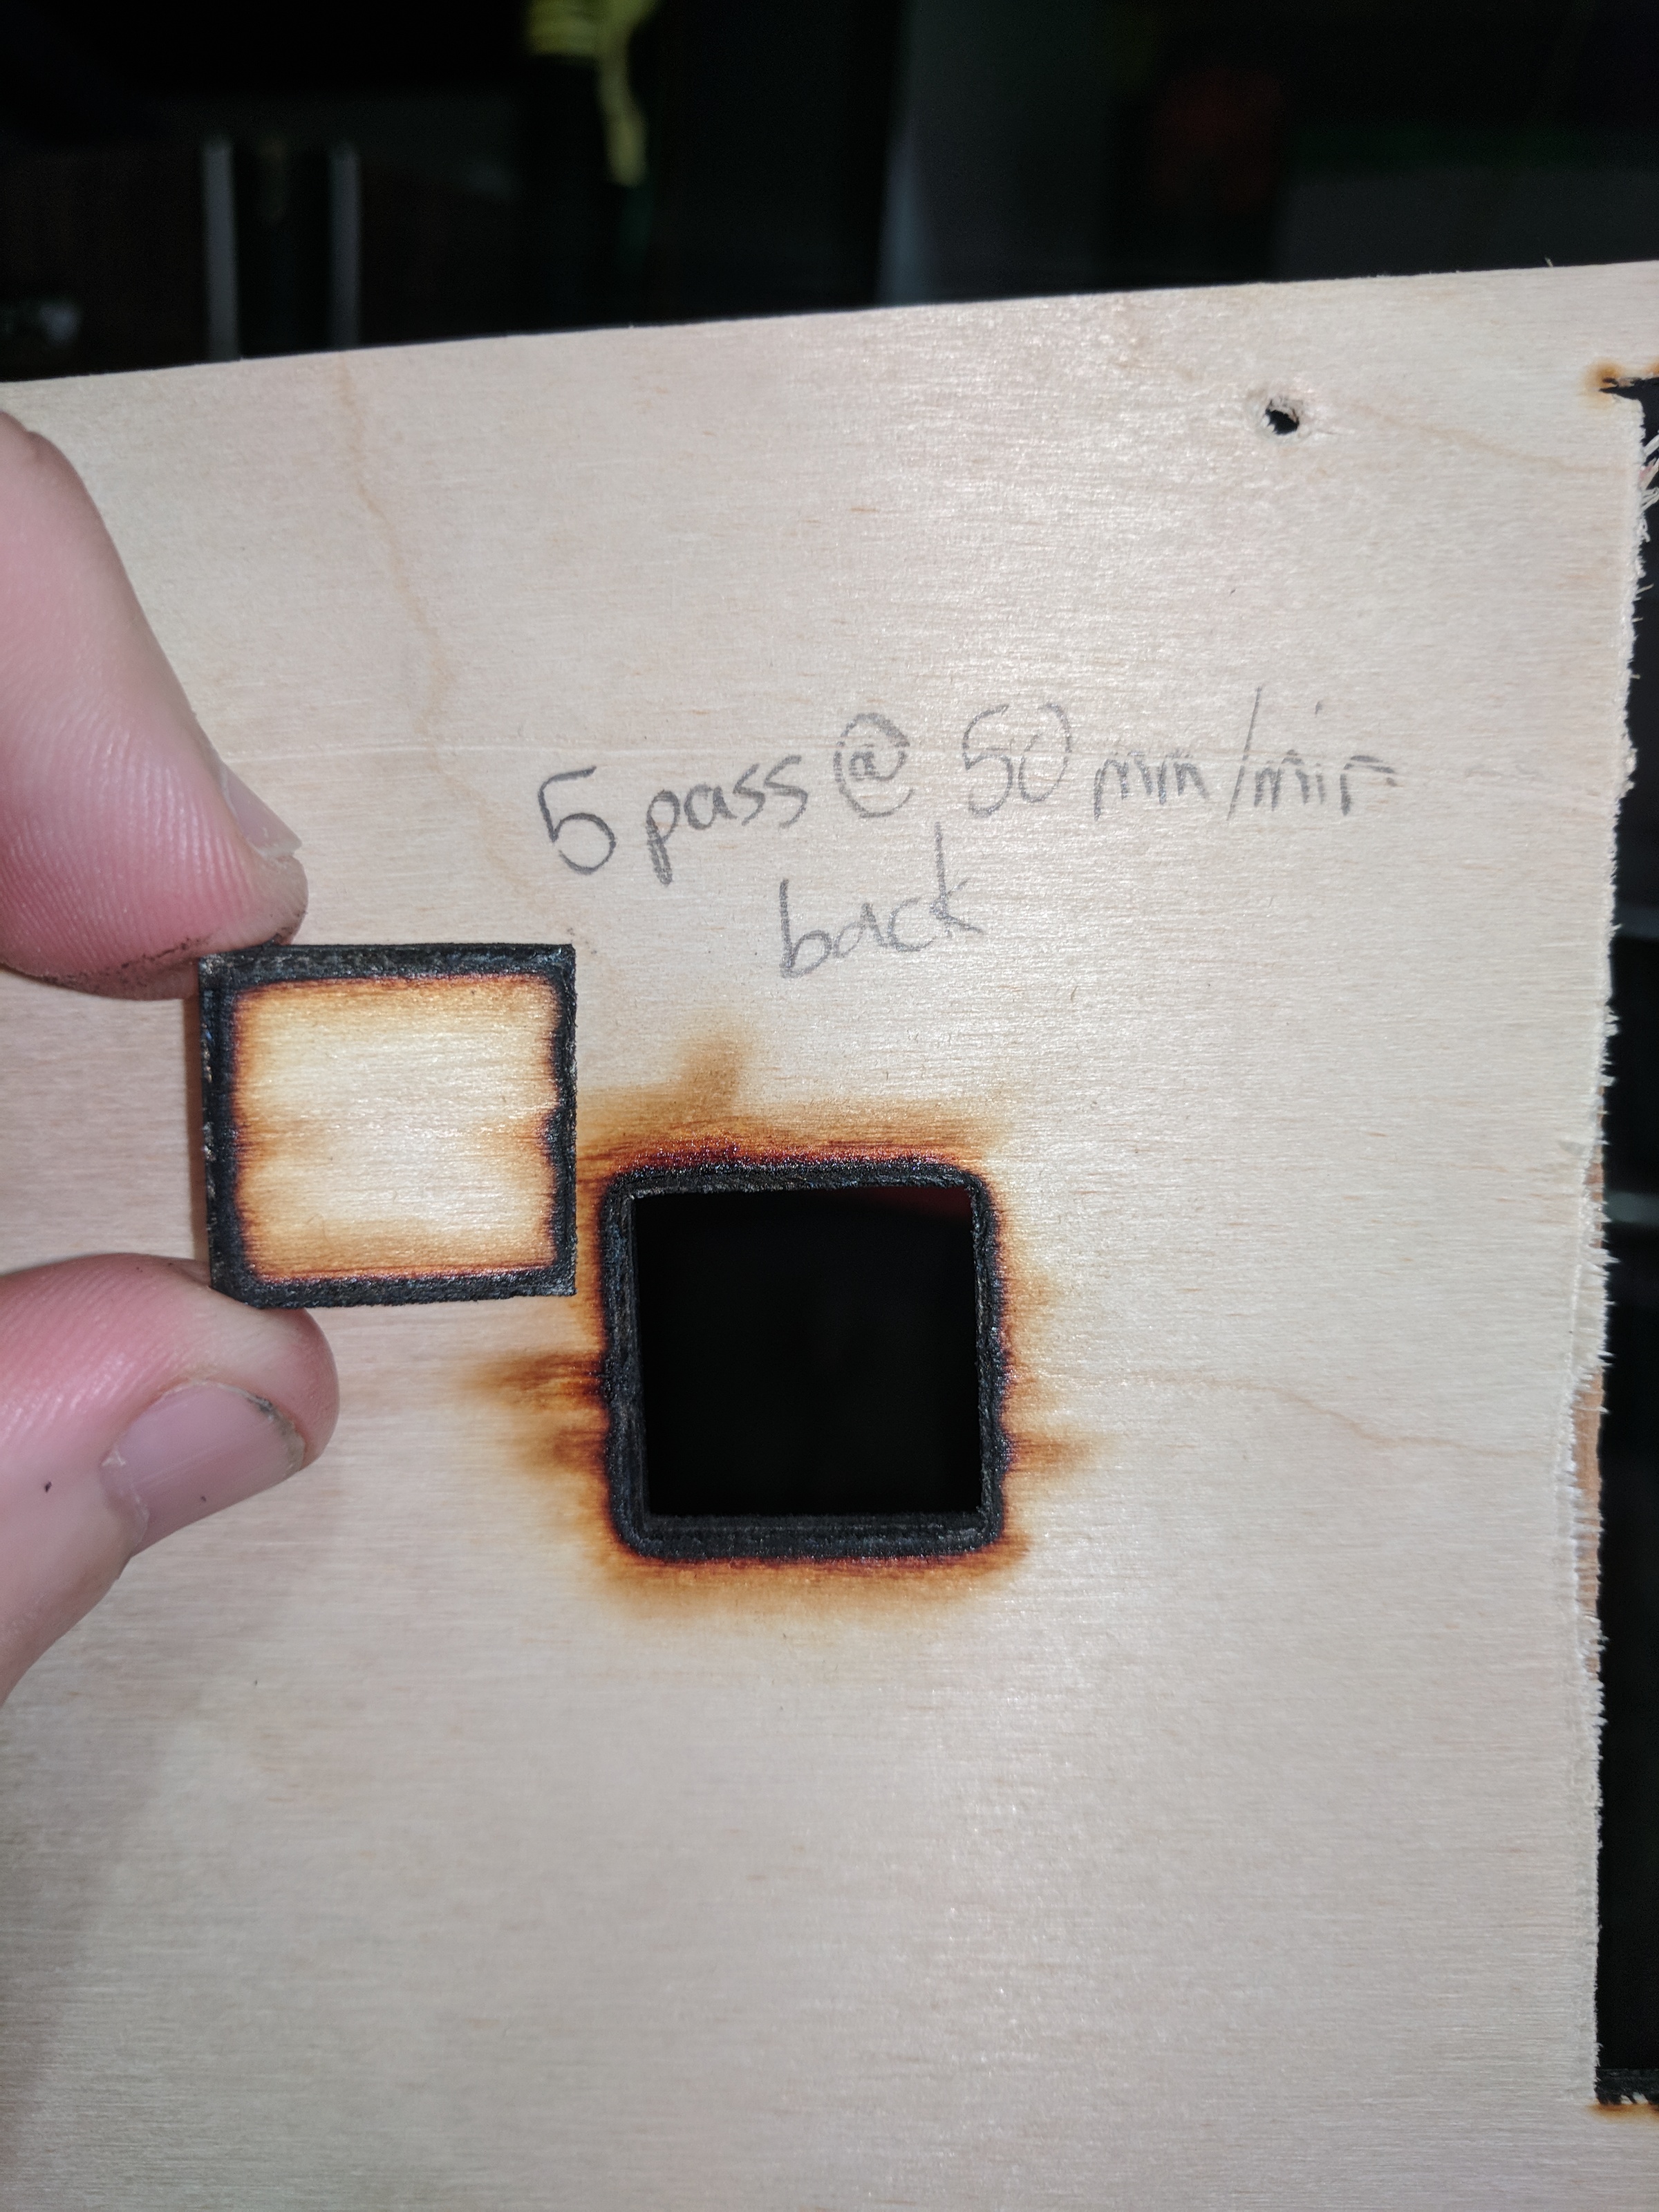 5 pass @ 50 mm/min
back